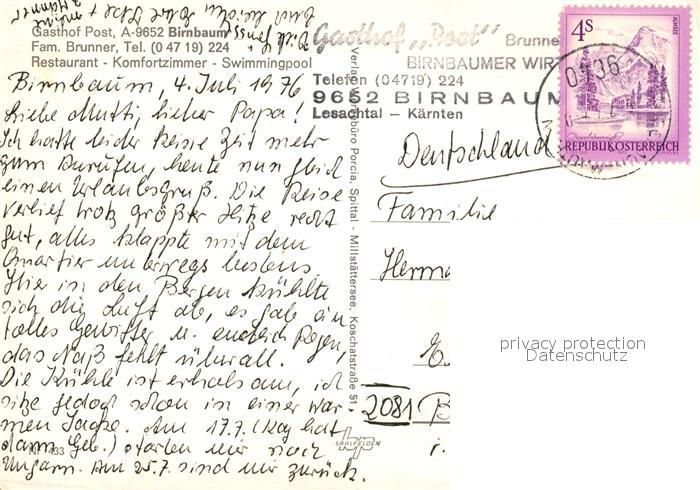 Gasthof Post, A-9652 Birnbaum
Fam. Brunner, Tel. (0 47 19) 224
Restaurant - Komfortzimmer - Swimmingpool
Birnbaum, 4. Juli 1976
Liebe Mutti, lieber Papa!
Ich hatte leider keine Zeit mehr
zum Anrufen, heute nun gleich
einen Urlaubsgruß. Die Reise
verlief trotz größter Hitze recht
gut, alles klappte mit dem
Quartier unterwegs bestens.
Hier in den Bergen kühlte
sich die Luft ab, es gab ein
tolles Gewitter u. endlich Regen,
das Naß fehlt überall.
Die Kühle ist erholsam, ich
sitze jedoch schon in einer war-
men Jacke. Am 17.7. (Kay hat
dann Geb.) starten wir nach
Ungarn. Am 25.7 sind wir zurück.
Nr. 433
Verlag Werbebüro Porcia, Spittal - Millstättersee, Koschatstraße 51
SAALFELDEN
Gasthof „Post"
Brunne
BIRNBAUMER WIRT
Telefon (04719) 224
9652 BIRNBAUM
Lesachtal – Kärnten
4S
ALMSEE
REPUBLIK ÖSTERREICH
Deutschland
Familie
Herma
2081 B
privacy protection
Datenschutz